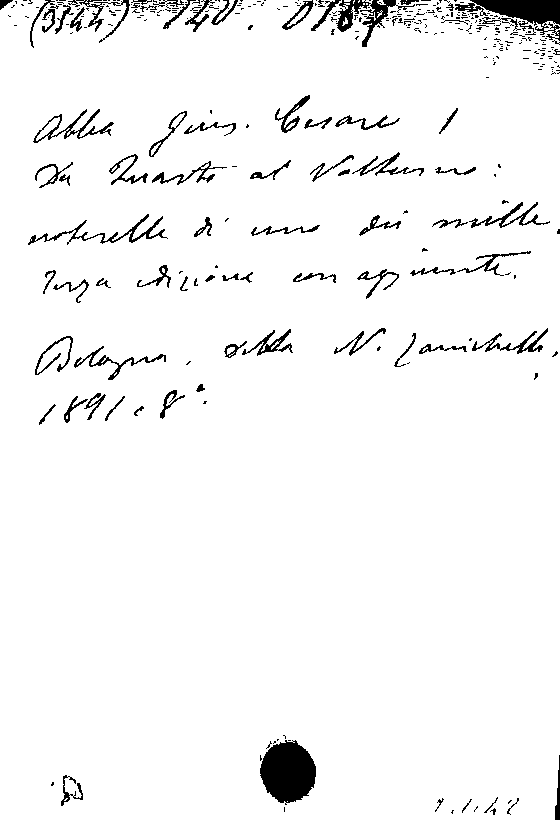 (3544) 140. 0187
Abba Gius. Cesare 1
Da Quarto al Volturno:
noterelle di uno dei mille.
Terza edizione con aggiunte.
Bologna, ditta N. Zanichelli,
1891. 8°.